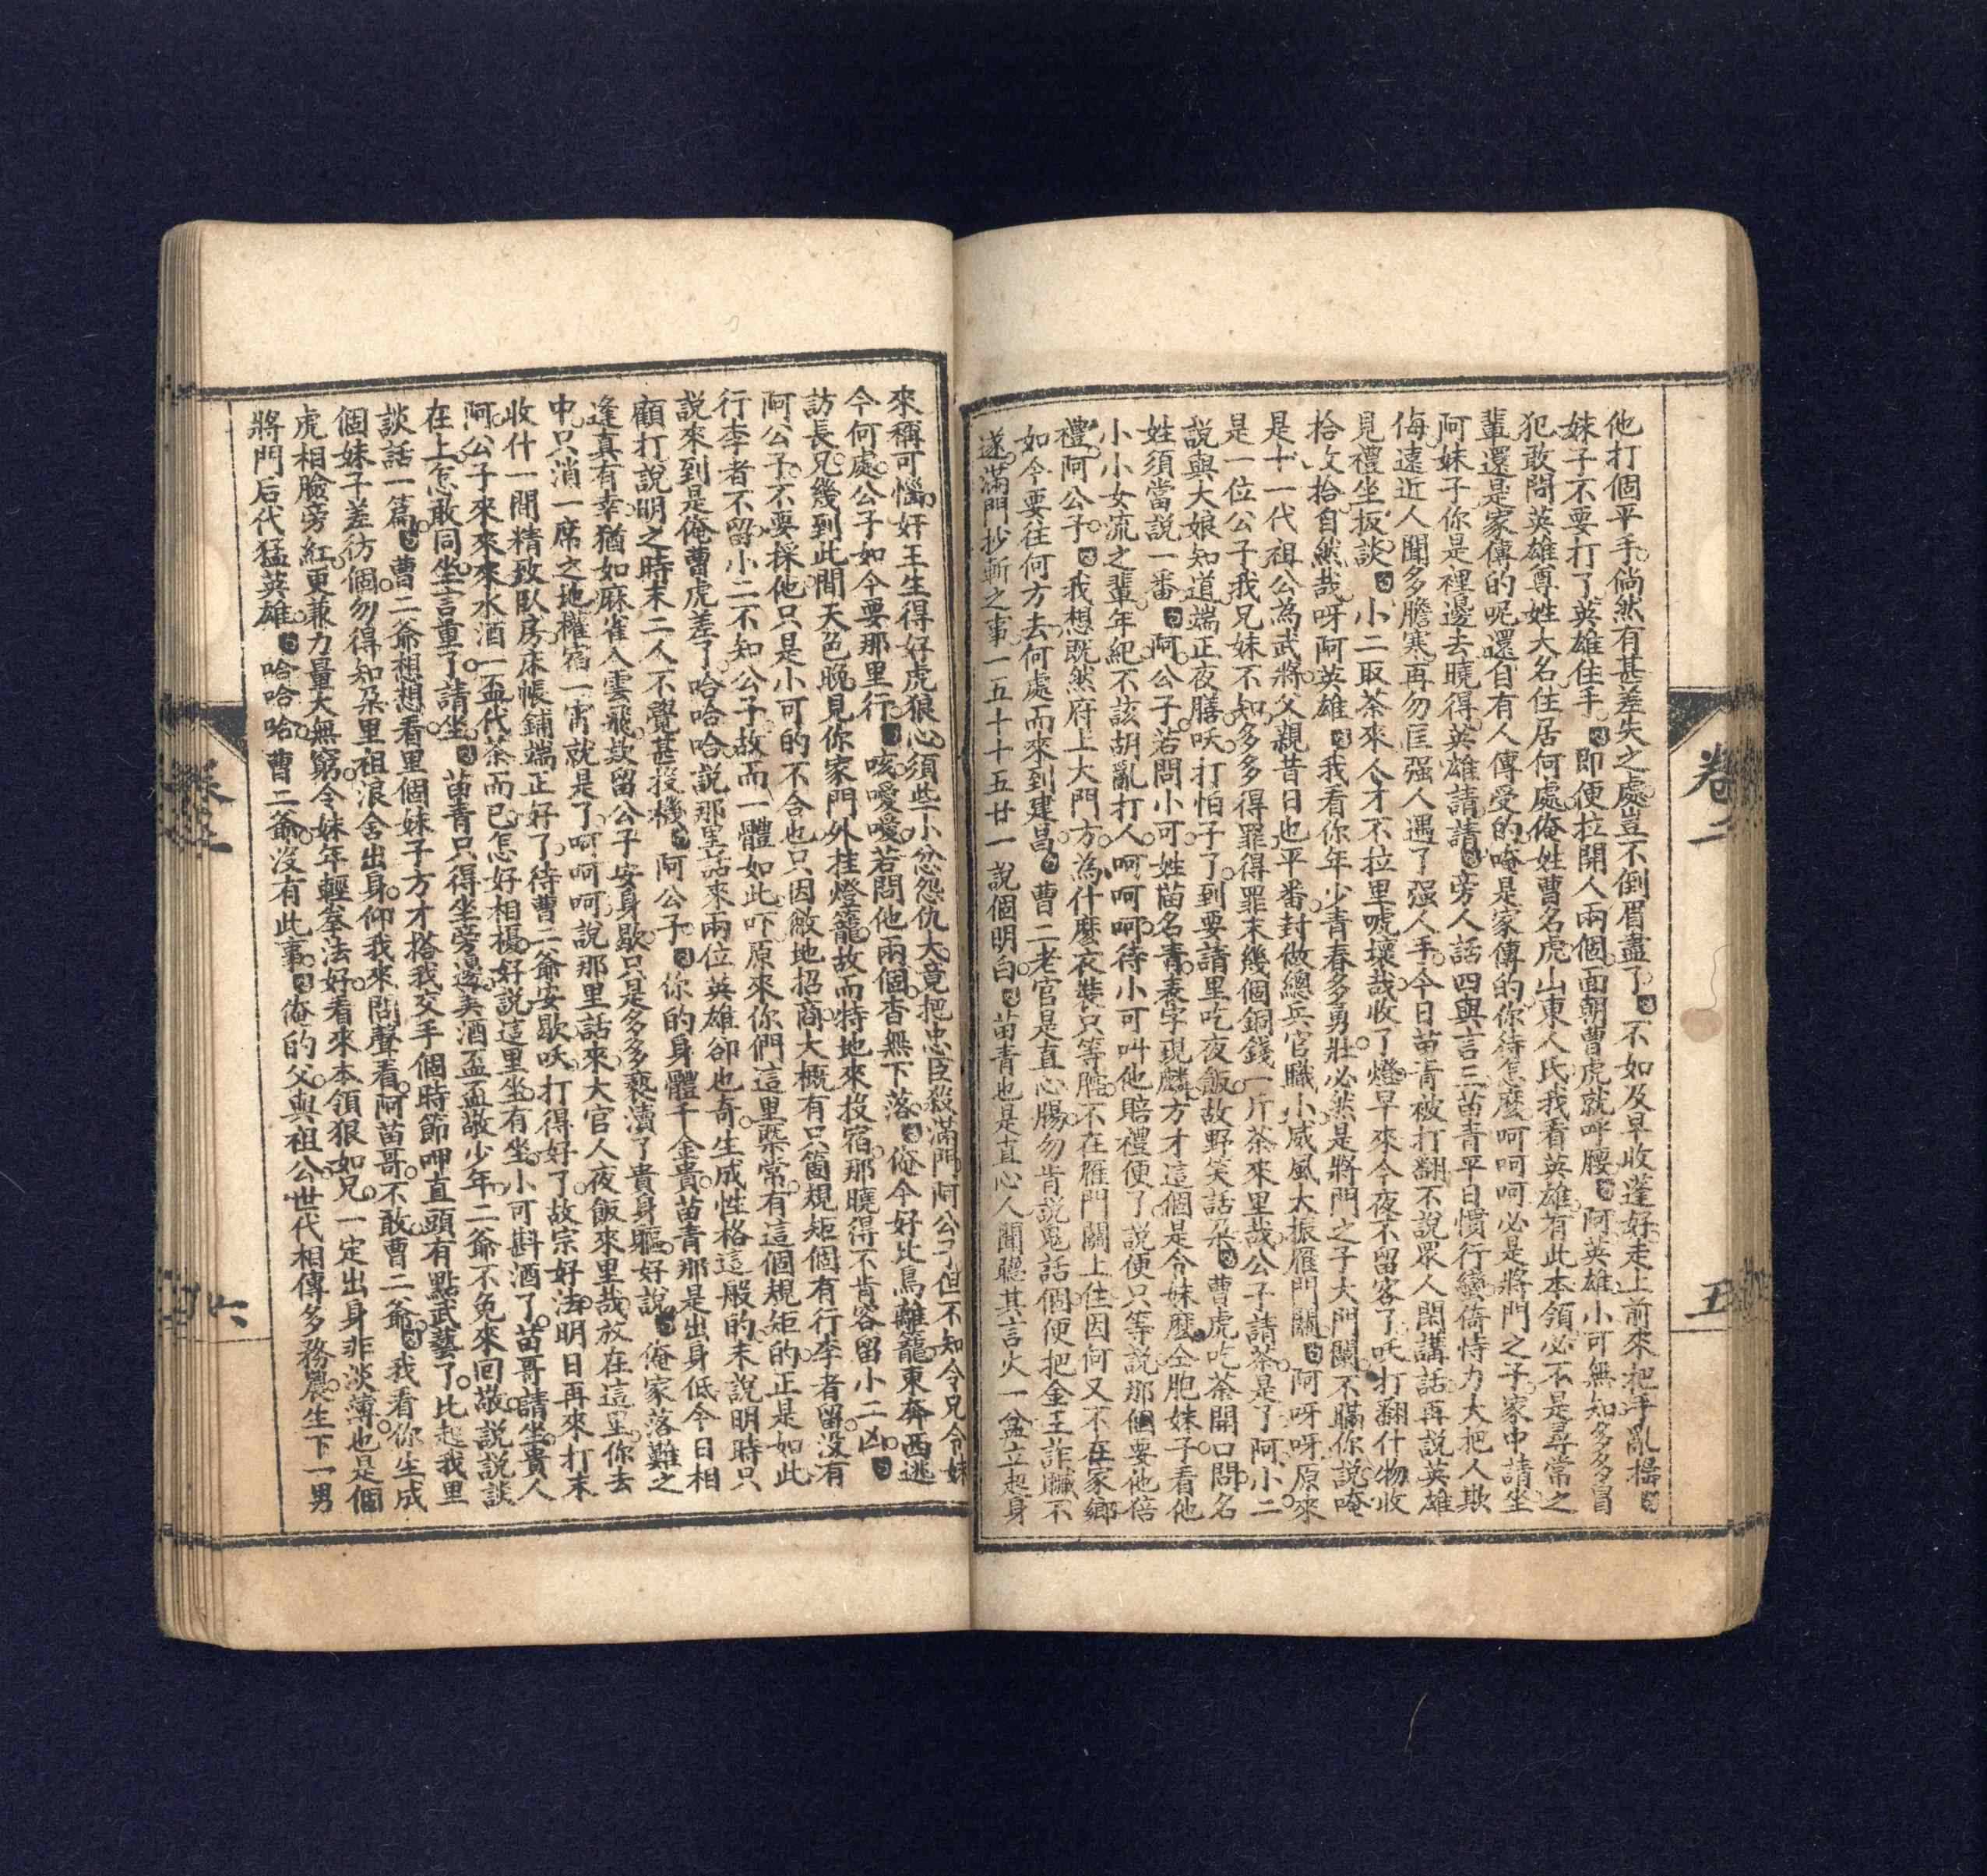 卷二
五
他打個平手。倘然有甚差失之處。豈不倒眉盡了。不如及早收蓬好。走上前來把手亂搖。
妹子不要打了。英雄住手。即便拉開人兩個。面朝曹虎就呼腰。阿英雄小可無知多多冒
犯。敢問英雄尊姓大名。住居何處。俺姓曹名虎。山東人氏。我看英雄有此本領。必不是尋常之
輩。還是家傳的呢。還自有人傳受的。唵是家傳的。你待怎麽。呵呵呵必是將門之子。家中請坐。
阿妹子。你是裡邊去。曉得。英雄請請。旁人話四與言三。苗青平日慣行蠻。倚恃力大把人欺
侮。遠近人聞多膽寒。再勿匡强人遇了强人手。今日苗青被打翻。不說眾人閑講話。再説英雄
見禮坐扳談。小二取茶來。人才不拉里唬壞哉。收了燈早來。今夜不留客了。吥打翻什物收
拾收拾自然哉。呀阿英雄。我看你年少青春多勇壯。必然是將門之子大門闌。不瞞你説。唵
是十一代祖公為武將。父親昔日也平番。封做總兵官職小。威風大振雁門關。阿呀呀原來
是一位公子。我兄妹不知多多得罪得罪。末幾個銅錢一斤茶來里哉。公子請茶。是了。阿小二
說與大娘知道。端正夜膳。吥打怕子了。到要請里吃夜飯。故野笑話朶。曹虎吃茶開口問。名
姓須當説一番。阿公子。若問小可姓苗名青。表字現麟。方才這個是令妹麽。仝胞妹子。看他
小小女流之輩。年紀不該胡亂打人。呵呵呵待小可叫他賠禮便了。説便只等説。那個要他倍
禮。阿公子。我想既然府上大門方。為什麽衣裝只等腔。不在雁門關上住。因何又不在家鄉。
如今要往何方去。何處而來到建昌。曹二老官是直心腸。勿肯説鬼話個。便把金王詐贜不
遂。滿門抄斬之事。一五十十五廿一說個明白。苗青也是直心人。聞聽其言火一盆。立起身
來稱可惱。奸王生得好虎狼心。須些小忿怨仇大。竟把忠臣殺滿門。阿公子。但不知令兄令妹
今何處。公子如今要那里行。咳噯噯若問他兩個。杳無下落。俺今好比鳥離籠。東奔西逃
訪長兄。幾到此間天色晚。見你家門外挂燈籠。故而特地來投宿。那曉得不肯容留小二凶。
阿公子。不要採他。只是小可的不含也。只因敝地招商大概有只箇規矩個。有行李者留。没有
行李者不留。小二不知公子。故而一體如此。吓原來你們這里槩常有這個規矩的。正是如此。
説來到是俺曹虎差了。哈哈哈説那里話來。兩位英雄卻也奇。生成性格這般的。末說明時只
顧打。說明之時末二人不覺甚投機。阿公子。你的身體千金貴。苗青那是出身低。今日相
逢真有幸。猶如麻雀入雲飛。款留公子安身歇。只是多多褻瀆了貴身軀。好説。俺家落難之
中。只消一席之地。權宿一宵就是了。呵呵呵說那里話來。大官人夜飯來里哉。放在這里。你去
收什一間精致臥房。床帳鋪端正好了。待曹二爺安歇。吥打得好了。故宗好法。明日再來打末。
阿公子來來來。水酒一盃代茶而已。怎好相擾。好説。這里坐。有坐。小可斟酒了。苗哥請坐。貴人
在上。怎敢同坐。言重了請坐。苗青只得坐旁邊。美酒盃盃敬少年。二爺不免來回敬。説説談
談話一篇。曹二爺想想看。里個妹子方才搭我交手個時節。呷直頭有點武藝了。比起我里
個妹子差彷個。勿得知朶里祖浪舍出身。仰我來問聲看。阿苗哥。不敢曹二爺。我看你生成
虎相臉旁紅。更兼力量大無窮。令妹年輕拳法好。看來本領狠如兄。一定出身非淡薄。也是個
將門后代猛英雄。哈哈哈曹二爺没有此事。俺的父與祖公。世代相傳多務農。生下一男
卷二
六